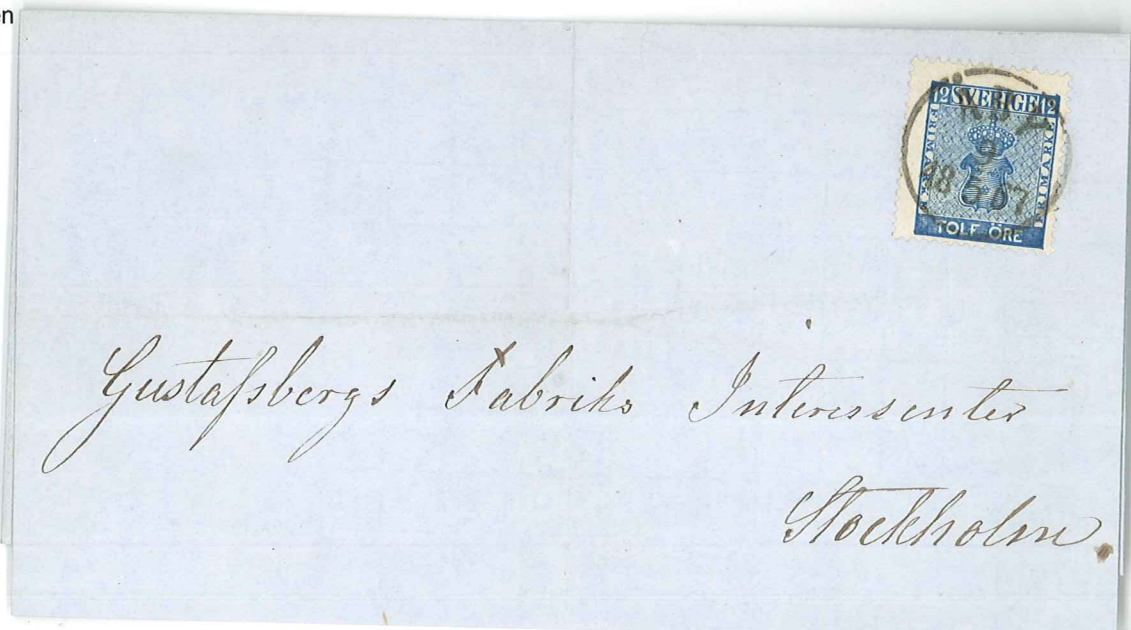 en
12 SVERIGE 12
FRIMARKE
FRIMARKE
TOLF ÖRE
9
18 67
Gustafsbergs Fabriks Interessenter
Stockholm.